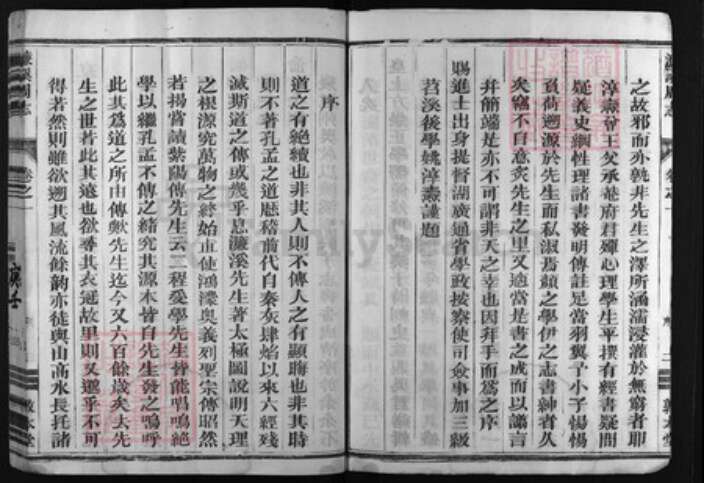 之故邪而亦孰非先生之澤所涵濡浸灌於無窮者耶
淳燾曾王父承菴府君殫心理學生平撰有經書疑問
疑義史綱性理諸書發明傳註足當羽翼予小子惕惕
負荷遡源於先生而私淑焉顏之學伊之志書紳省久
矣竊不自意炙先生之里又適當是書之成而以譾言
弁簡端是亦不可謂非天之幸也因拜手而為之序
賜進士出身提督湖廣通省學政按察使司僉事加三級
苕溪後學姚淳燾謹題
序
道之有絕續也非其人則不傳人之有顯晦也非其時
則不著孔孟之道歷稽前代自秦灰肆焰以來六經殘
滅斯道之傳或幾乎息濂溪先生著太極圖說明天理
之根源究萬物之終始直使鴻濛奧義列聖宗傳昭然
若揭嘗讀紫陽傳先生云二程受學先生皆能唱鳴絕
學以繼孔孟不傳之緒究其源本皆自先生發之嗚呼
此其為道之所由傳歟先生迄今又六百餘歲矣去先
生之世若此其遠也欲尋其衣冠故里則又邈乎不可
得若然則雖欲遡其風流餘韵亦徒與山高水長托諸
卷之一
敦本堂